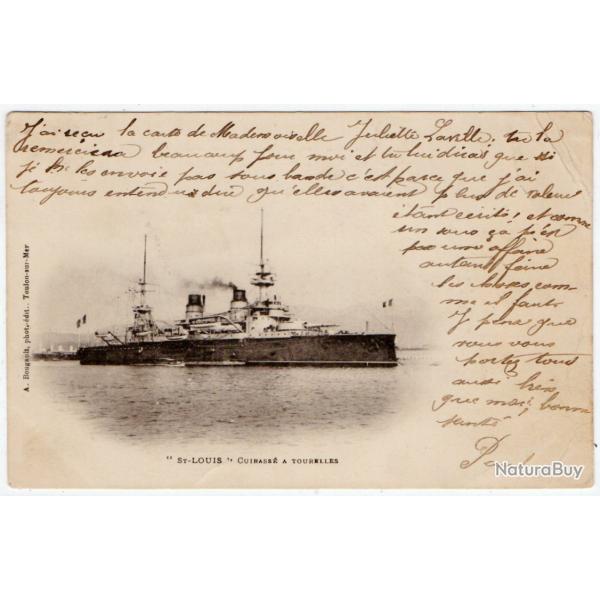 J'ai reçu la carte de Mademoiselle Juliette Laville, tu la
remerciera beaucoup pour moi et tu lui diras que si
je ne les envoie pas sous bande c'est parce que j'ai
toujours entendu dire qu'elles avaient plus de valeur
étant écrite, et comme
un sous ça n'est
pas une affaire
autant faire
les choses com
me il faut
J'espère que
vous vous
portez tous
aussi bien
que moi, bonne
santé
A. Bougault, phot.-édit., Toulon-sur-Mer
" ST-LOUIS " CUIRASSÉ A TOURELLES
NaturaBuy